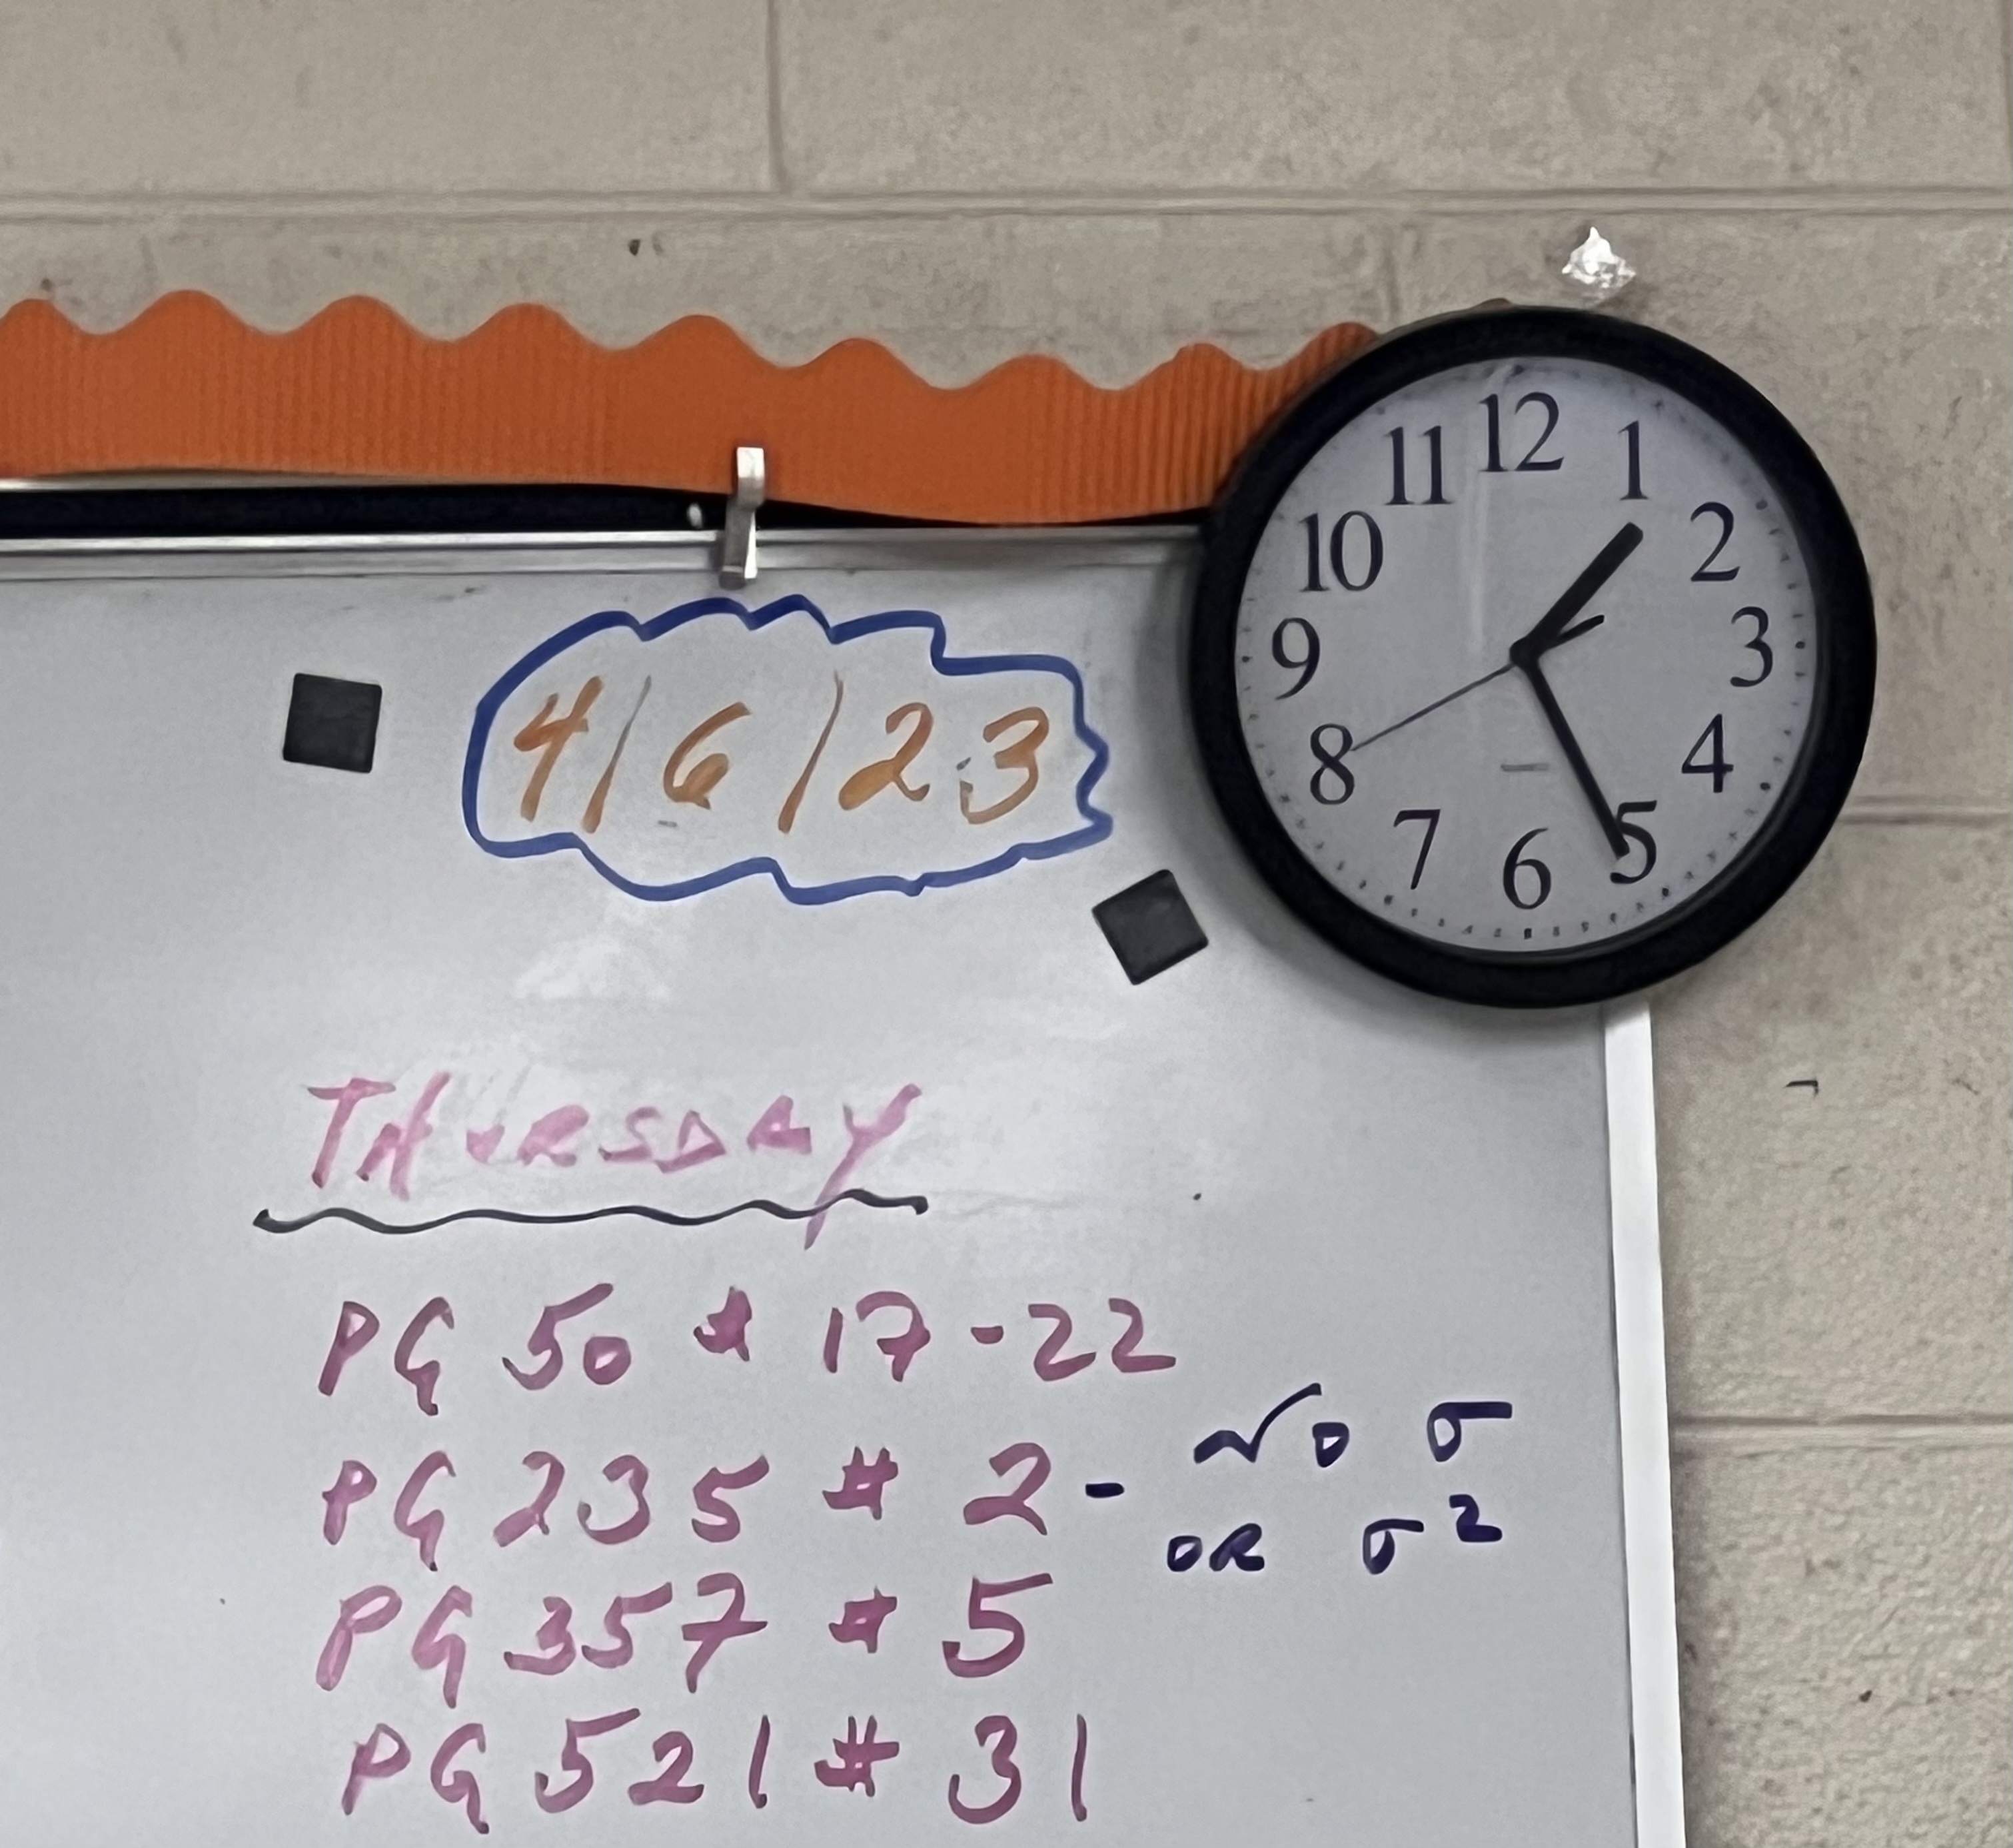 12
11 1
10 2
9 3
8 4
7 5
6
4/6/23
THURSDAY
PG 50 # 17-22
PG 235 # 2 - NO σ
OR σ²
PG 357 # 5
PG 521 # 31